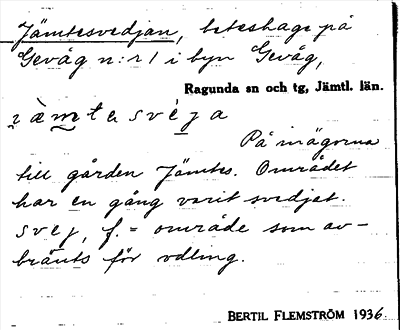 Jämtesvedjan, beteshage på
Gevåg n:r 1 i byn Gevåg,
Ragunda sn och tg, Jämtl. län.
På inägorna
till gården Jämtes. Området
har en gång varit svedjat.
svej, f. = område som av-
bränts för odling.
BERTIL FLEMSTRÖM 1936.